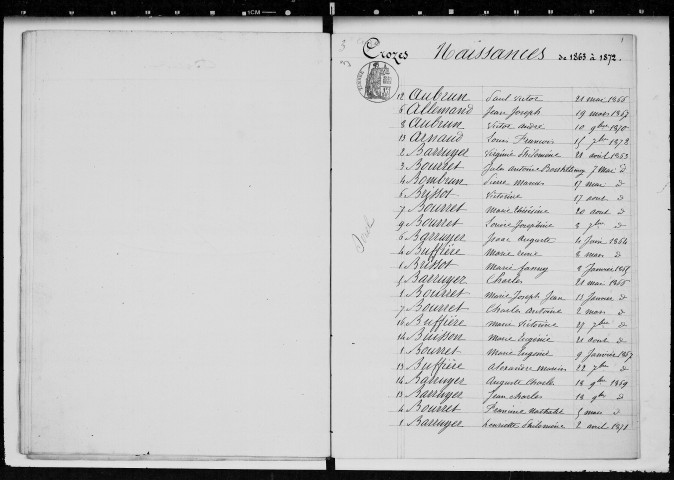 Crozes Naissances de 1863 à 1872.
12 Aubrun Paul Victor 21 mai 1866
6 Allemand Jean Joseph 19 mars 1867
8 Aubrun Victor André 10 9bre 1870
13 Arnaud Louis François 15 7bre 1872
2 Barruyer Virginie Philomène 21 avril 1863
3 Bourret Jules Antoine Barthélemy 7 mai d
4 Bombrun Pierre Marius 17 mai d
5 Brissot Victorine 17 aout d
7 Bourret Marie Thérésine 20 aout d
9 Bourret Louise Joséphine 3 7bre d
6 Barruyer Isaac Auguste 4 juin 1864
4 Buffière Marie 8 mars d
1 Brissot Marie fanny 8 Janvier 1865
5 Barruyer Charles 21 mai 1866
1 Bourret Marie Joseph Jean 13 Janvier d
7 Bourret Charles Antoine 2 mars d
16 Buffière Marie Victorine 27 7bre d
14 Buisson Marie Eugénie 21 aout d
1 Bourret Marie Eugénie 9 Janvier 1867
13 Buffière Alexandre Marius 22 7bre d
14 Barruyer Auguste Charles 18 9bre 1869
13 Barruyer Jean Charles 18 9bre d
4 Bourret Francine 5 mai d
1 Barruyer Henriette Philomène 2 avril 1871